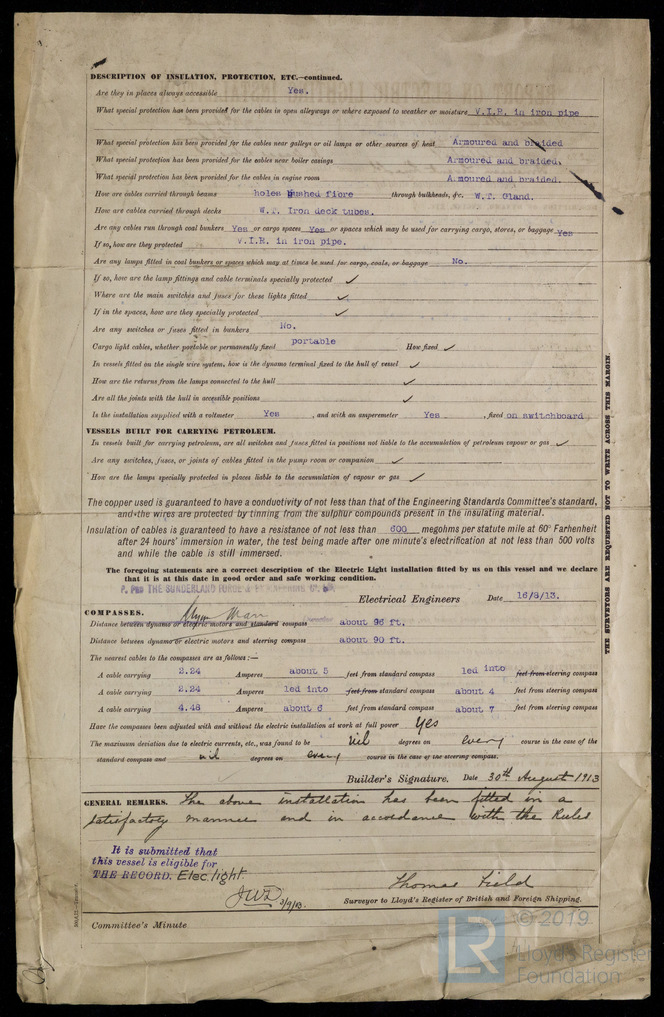 DESCRIPTION OF INSULATION, PROTECTION, ETC.—continued.
Are they in places always accessible Yes.
What special protection has been provided for the cables in open alleyways or where exposed to weather or moisture V.I.R. in iron pipe
What special protection has been provided for the cables near galleys or oil lamps or other sources of heat Armoured and braided
What special protection has been provided for the cables near boiler casings Armoured and braided.
What special protection has been provided for the cables in engine room A.moured and braided.
How are cables carried through beams holes bushed fibre through bulkheads, &c. W.T. Gland.
How are cables carried through decks W.T. Iron deck tubes.
Are any cables run through coal bunkers Yes or cargo spaces Yes or spaces which may be used for carrying cargo, stores, or baggage Yes
If so, how are they protected V.I.R. in iron pipe.
Are any lamps fitted in coal bunkers or spaces which may at times be used for cargo, coals, or baggage No.
If so, how are the lamp fittings and cable terminals specially protected ✓
Where are the main switches and fuses for these lights fitted ✓
If in the spaces, how are they specially protected ✓
Are any switches or fuses fitted in bunkers No.
Cargo light cables, whether portable or permanently fixed portable How fixed ✓
In vessels fitted on the single wire system, how is the dynamo terminal fixed to the hull of vessel ✓
How are the returns from the lamps connected to the hull ✓
Are all the joints with the hull in accessible positions ✓
Is the installation supplied with a voltmeter Yes , and with an amperemeter Yes , fixed on switchboard
VESSELS BUILT FOR CARRYING PETROLEUM.
In vessels built for carrying petroleum, are all switches and fuses fitted in positions not liable to the accumulation of petroleum vapour or gas ✓
Are any switches, fuses, or joints of cables fitted in the pump room or companion ✓
How are the lamps specially protected in places liable to the accumulation of vapour or gas ✓
The copper used is guaranteed to have a conductivity of not less than that of the Engineering Standards Committee's standard,
and the wires are protected by tinning from the sulphur compounds present in the insulating material.
Insulation of cables is guaranteed to have a resistance of not less than 600 megohms per statute mile at 60° Farhenheit
after 24 hours' immersion in water, the test being made after one minute's electrification at not less than 500 volts
and while the cable is still immersed.
The foregoing statements are a correct description of the Electric Light installation fitted by us on this vessel and we declare
that it is at this date in good order and safe working condition.
P. PRO THE SUNDERLAND FORGE & ENGINEERING Co. Ld.
Electrical Engineers Date 16/8/13.
COMPASSES.
Distance between dynamo or electric motors and standard compass about 96 ft.
Distance between dynamo or electric motors and steering compass about 90 ft.
The nearest cables to the compasses are as follows:—
A cable carrying 2.24 Amperes about 5 feet from standard compass led into feet from steering compass
A cable carrying 2.24 Amperes led into feet from standard compass about 4 feet from steering compass
A cable carrying 4.48 Amperes about 6 feet from standard compass about 7 feet from steering compass
Have the compasses been adjusted with and without the electric installation at work at full power Yes
The maximum deviation due to electric currents, etc., was found to be nil degrees on every course in the case of the
standard compass and nil degrees on every course in the case of the steering compass.
Builder's Signature. Date 30th August 1913
GENERAL REMARKS. The above installation has been fitted in a
satisfactory manner and in accordance with the Rules
It is submitted that
this vessel is eligible for
THE RECORD. Elec. light.
JWD 3/9/13.
Thomas Field
Surveyor to Lloyd's Register of British and Foreign Shipping.
Committee's Minute
THE SURVEYORS ARE REQUESTED NOT TO WRITE ACROSS THIS MARGIN.
© 2019
LR
Lloyd's Register
Foundation